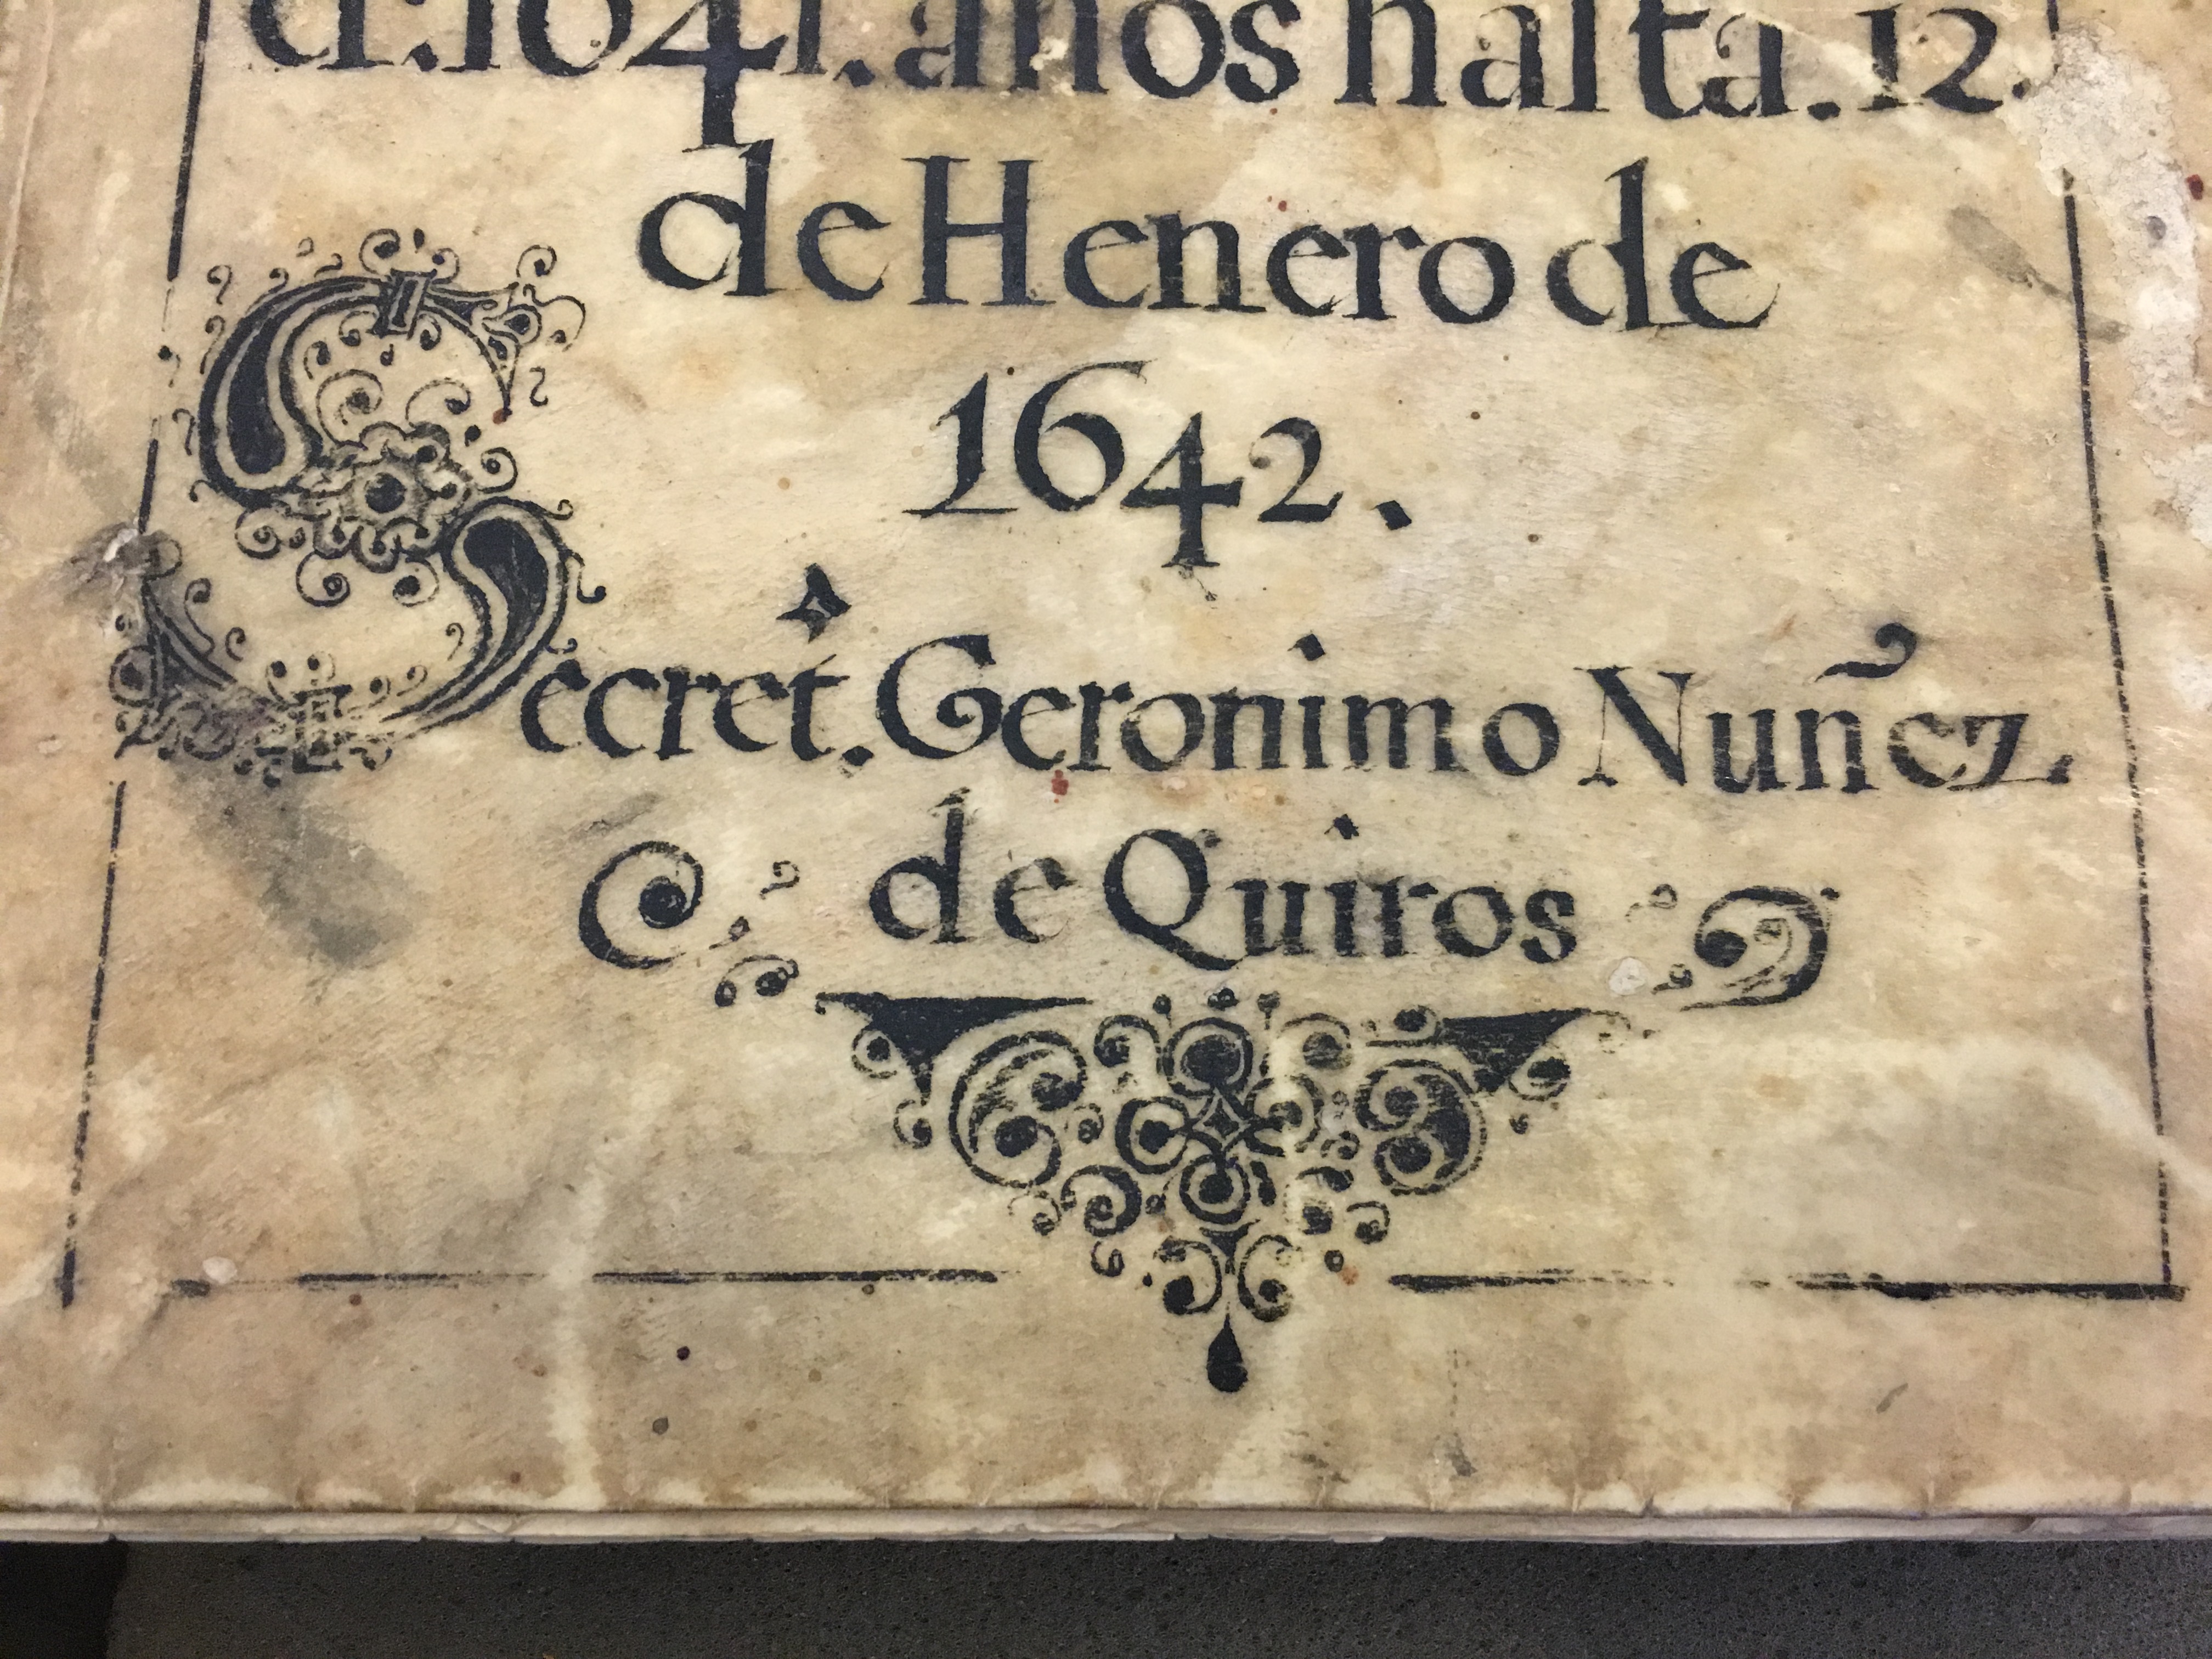 de 1641. años hasta. 12.
de Henero de
1642.
Secret. Geronimo Nuñez
de Quiros